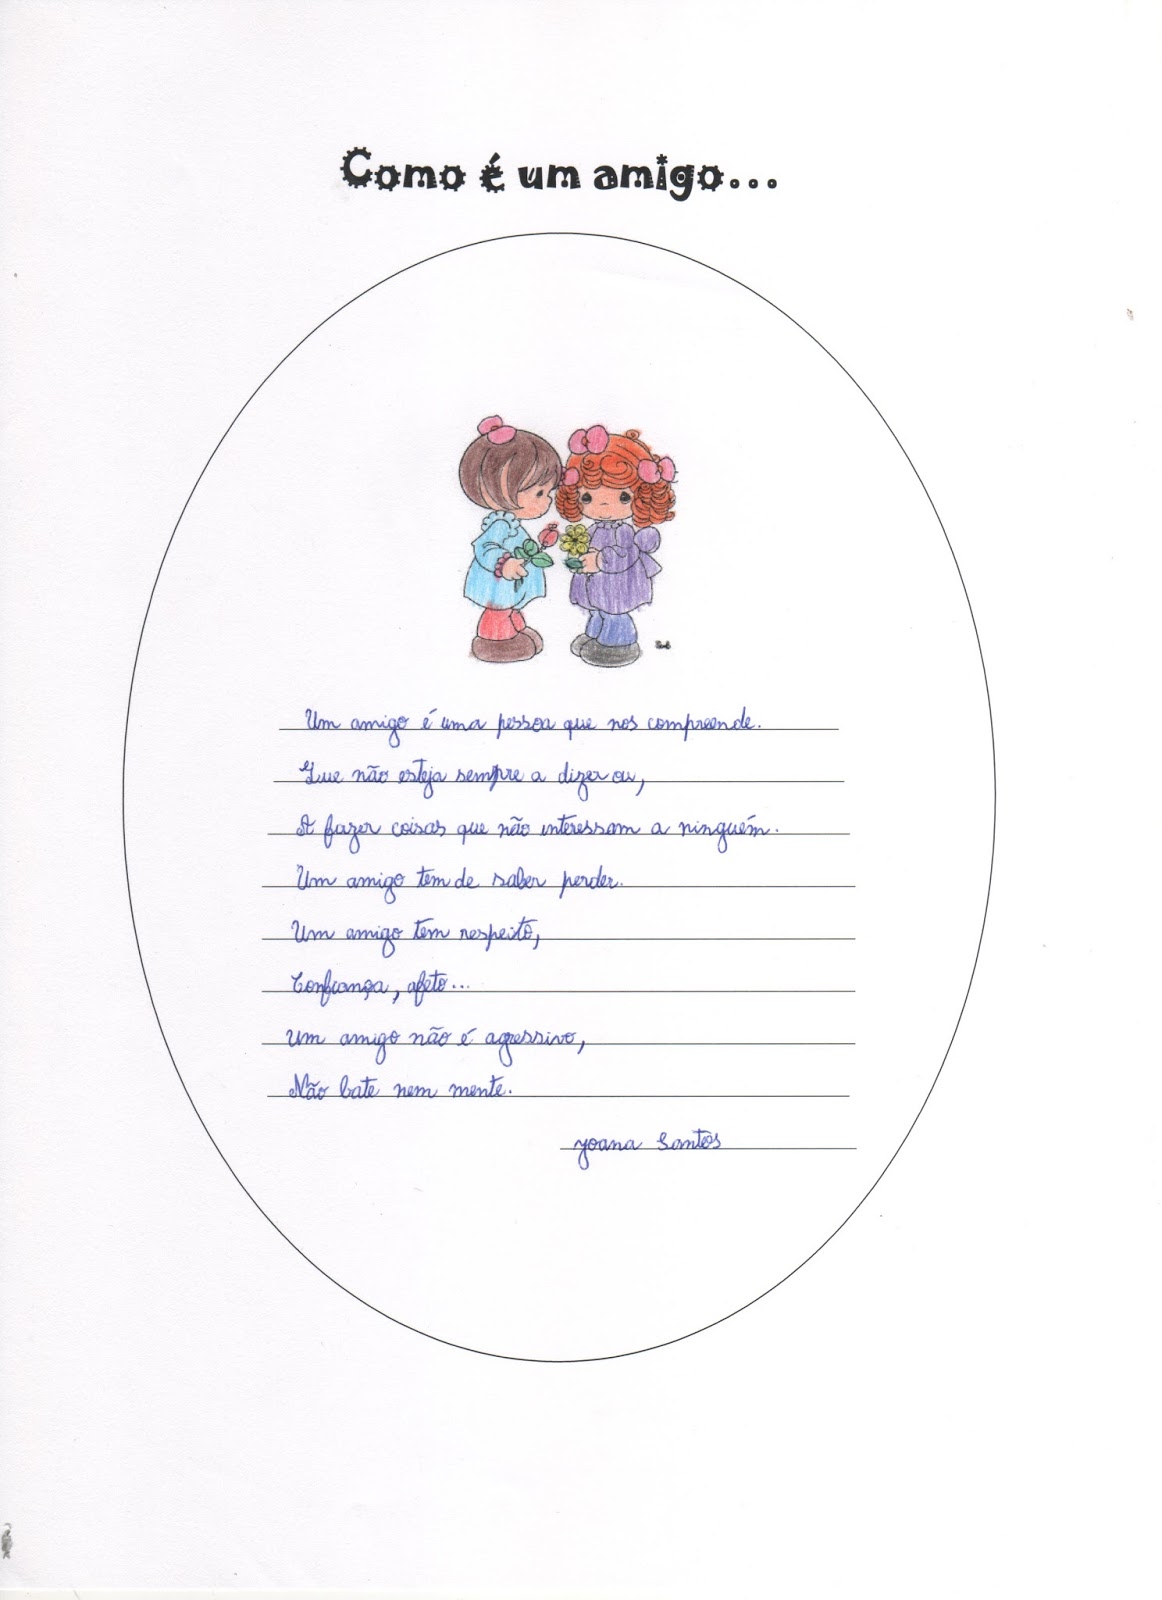 Como é um amigo...
Um amigo é uma pessoa que nos compreende.
Que não esteja sempre a dizer ou,
A fazer coisas que não interessam a ninguém.
Um amigo tem de saber perder.
Um amigo tem respeito,
Confiança, afeto...
Um amigo não é agressivo,
Não bate nem mente.
Joana Santos